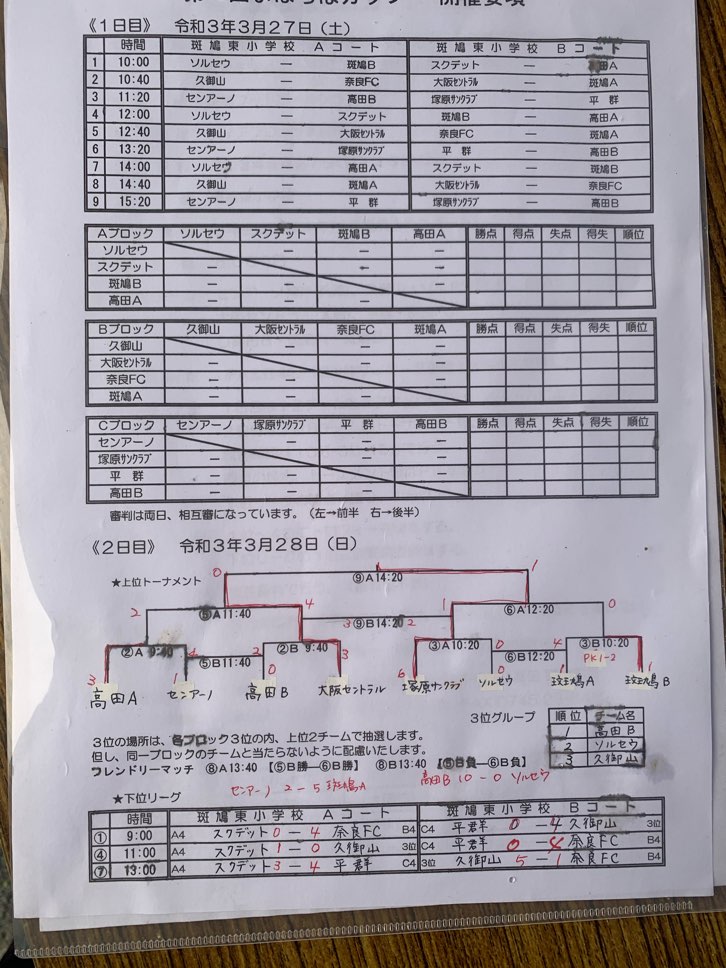 《１日目》 令和３年３月２７日（土）
時間 斑鳩東小学校 Ａコート 斑鳩東小学校 Ｂコート
1 10:00 ソルセウ ― 斑鳩B スクデット ― 高田A
2 10:40 久御山 ― 奈良FC 大阪セントラル ― 斑鳩A
3 11:20 センアーノ ― 高田B 塚原サンクラブ ― 平 群
4 12:00 ソルセウ ― スクデット 斑鳩B ― 高田A
5 12:40 久御山 ― 大阪セントラル 奈良FC ― 斑鳩A
6 13:20 センアーノ ― 塚原サンクラブ 平 群 ― 高田B
7 14:00 ソルセウ ― 高田A スクデット ― 斑鳩B
8 14:40 久御山 ― 斑鳩A 大阪セントラル ― 奈良FC
9 15:20 センアーノ ― 平 群 塚原サンクラブ ― 高田B
Ａブロック ソルセウ スクデット 斑鳩B 高田A 勝点 得点 失点 得失 順位
ソルセウ ― ― ―
スクデット ― ― ―
斑鳩B ― ― ―
高田A ― ― ―
Ｂブロック 久御山 大阪セントラル 奈良FC 斑鳩A 勝点 得点 失点 得失 順位
久御山 ― ― ―
大阪セントラル ― ― ―
奈良FC ― ― ―
斑鳩A ― ― ―
Ｃブロック センアーノ 塚原サンクラブ 平 群 高田B 勝点 得点 失点 得失 順位
センアーノ ― ― ―
塚原サンクラブ ― ― ―
平 群 ― ― ―
高田B ― ― ―
審判は両日、相互審になっています。（左→前半 右→後半）
《２日目》 令和３年３月２８日（日）
★上位トーナメント
0 ⑨A14:20 1
2 ⑤A11:40 4 3 ⑨B14:20 2 1 ⑥A12:20 0
②A 9:40 ⑤B11:40 2 ②B 9:40 ③A10:20 0 ⑥B12:20 4 ③B10:20
3 1 0 3 6 0 1 PK1-2 1
高田A センアーノ 高田B 大阪セントラル 塚原サンクラブ ソルセウ 斑鳩A 斑鳩B
３位グループ
順位 チーム名
1 高田B
2 ソルセウ
3 久御山
３位の場所は、各ブロック３位の内、上位２チームで抽選します。
但し、同一ブロックのチームと当たらないように配慮いたします。
フレンドリーマッチ ⑧A13:40 【⑤B勝―⑥B勝】 ⑧B13:40 【⑤B負―⑥B負】
センアーノ 2－5 斑鳩A 高田B 10－0 ソルセウ
★下位リーグ
時間 斑鳩東小学校 Ａコート 斑鳩東小学校 Ｂコート
① 9:00 A4 スクデット 0 － 4 奈良FC B4 C4 平群 0 － 4 久御山 3位
④ 11:00 A4 スクデット 1 － 0 久御山 3位 C4 平群 0 － 奈良FC B4
⑦ 13:00 A4 スクデット 3 － 4 平 群 C4 3位 久御山 5 － 1 奈良FC B4